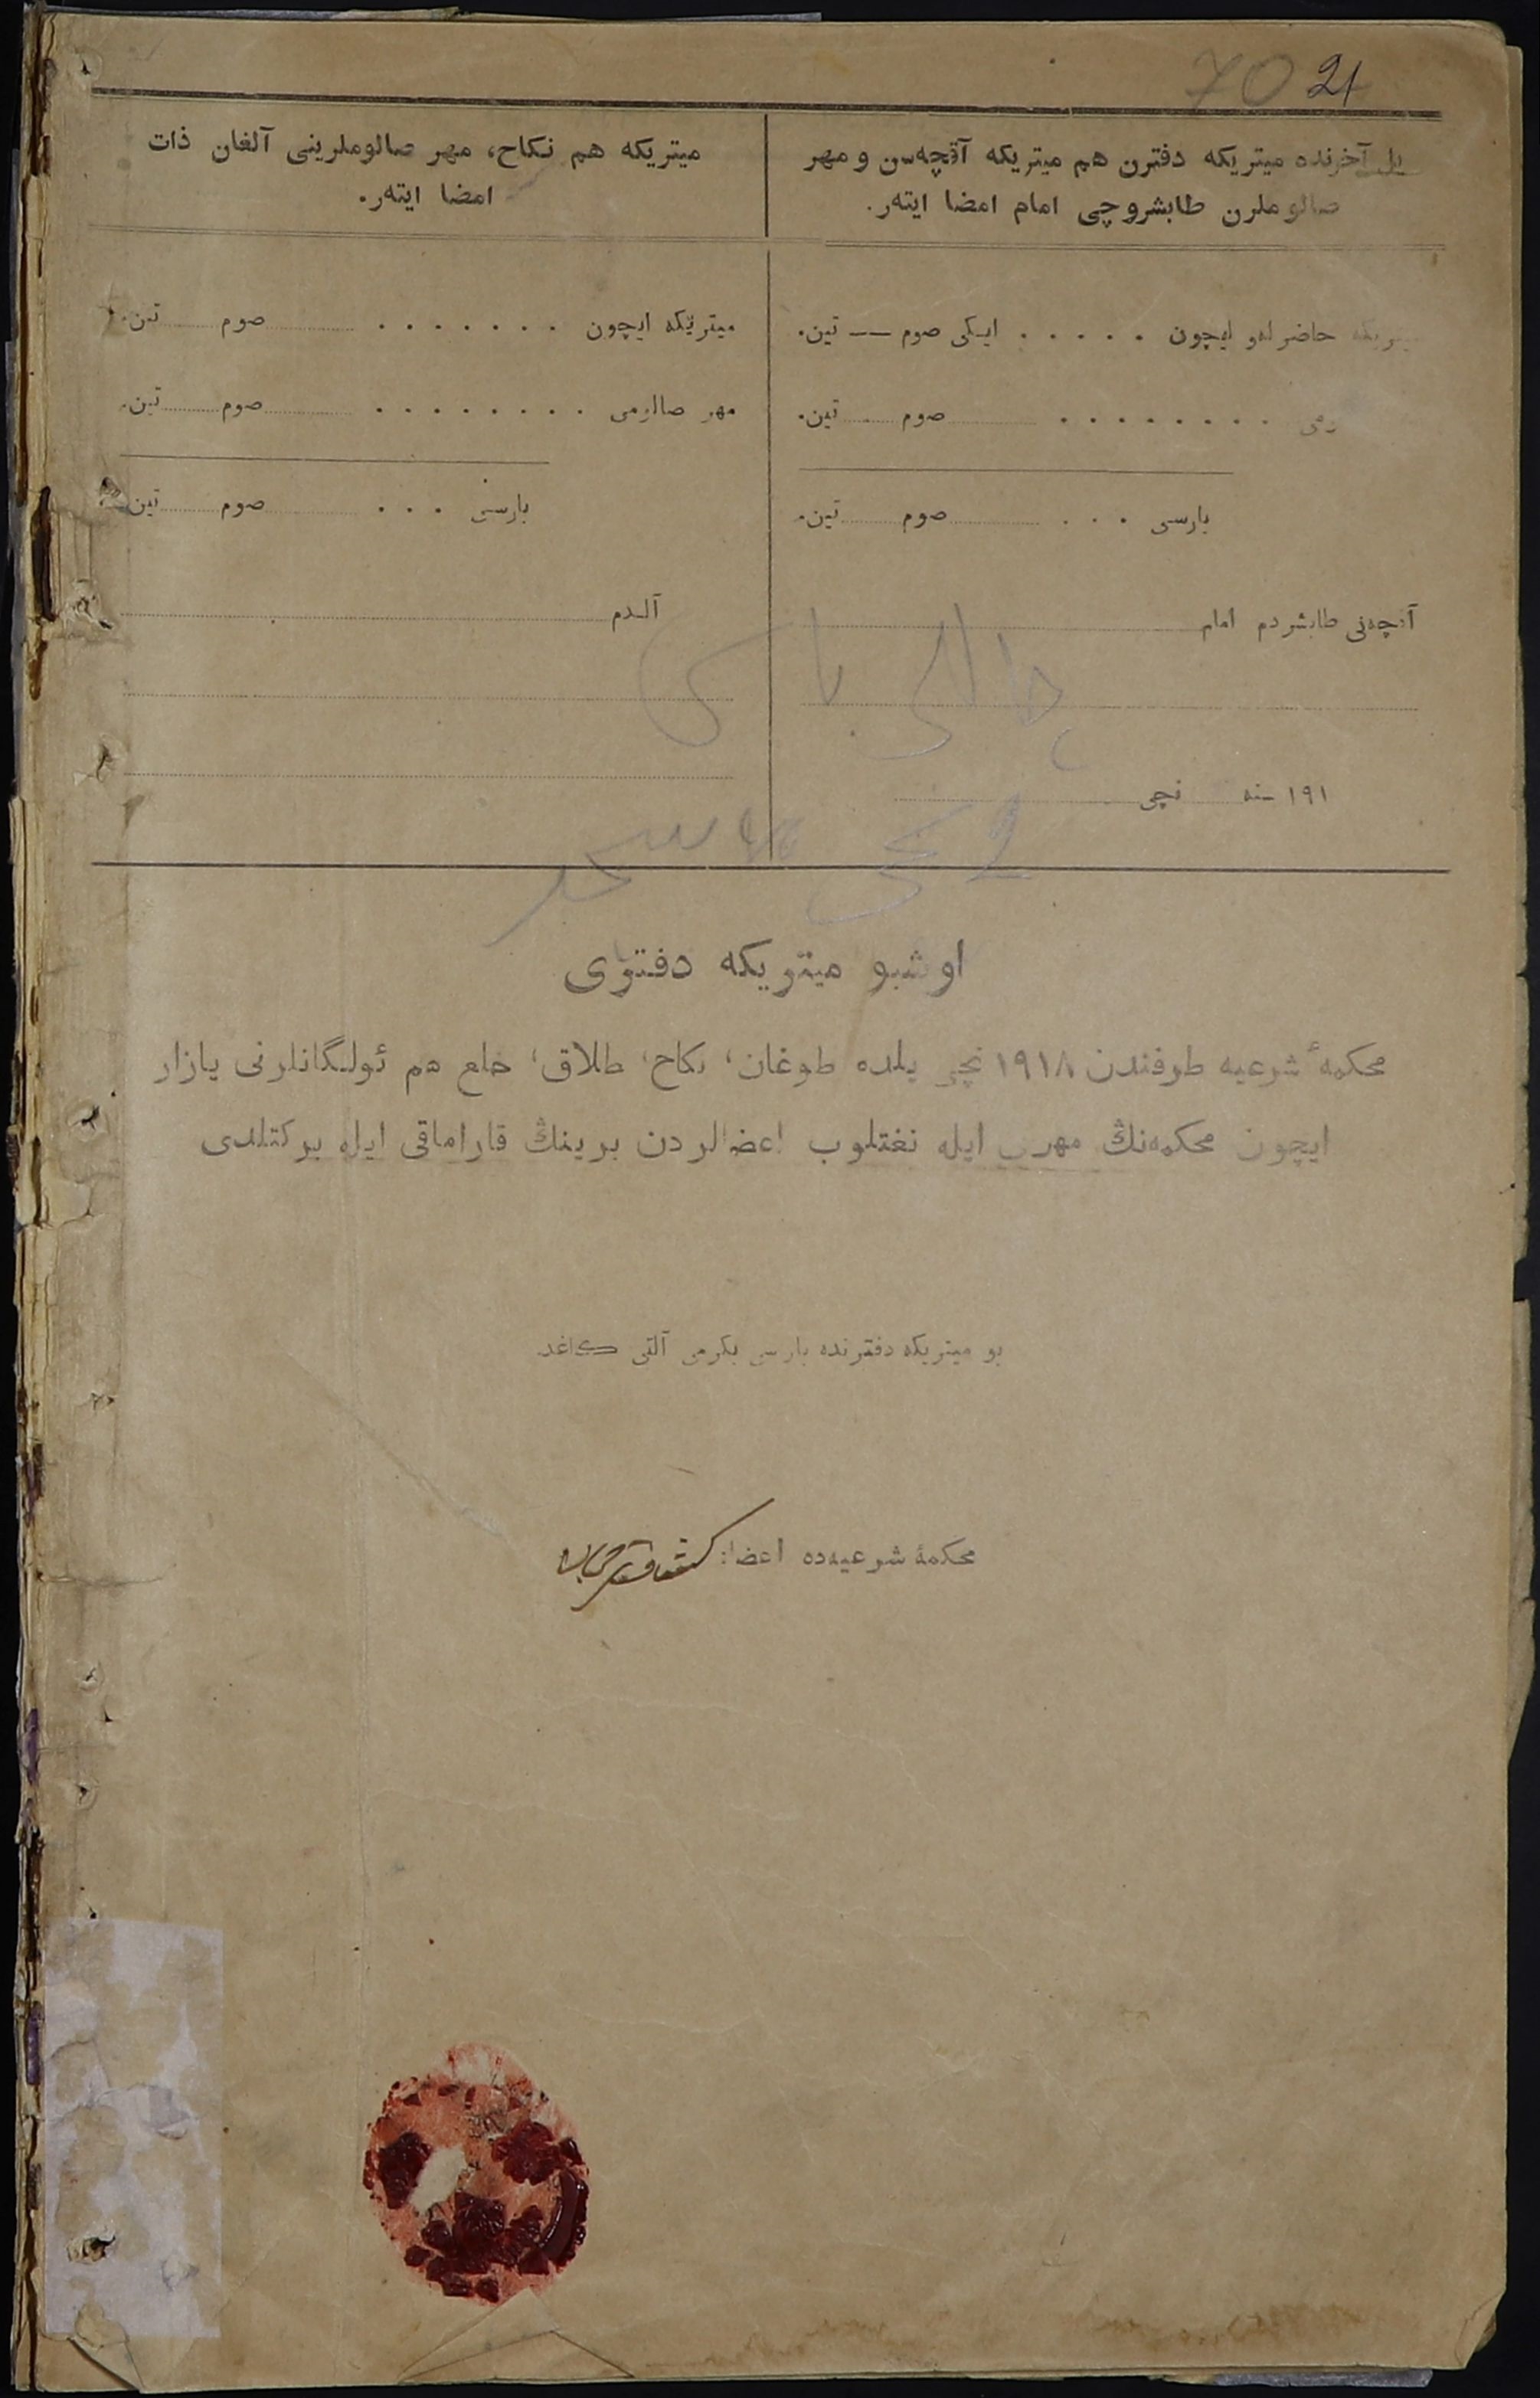 70 21
یل آخرنده میتریکه دفترن هم میتریکه آقچه‌سن و مهر
صالوملرن طابشروچی امام امضا ایته‌ر.
میتریکه حاضرله‌و ایچون . . . . . ایکی صوم — تین.
رمی . . . . . . . . صوم تین.
بارسی . . . صوم تین.
آقچه‌نی طابشردم امام
۱۹۱ سنه نچی
میتریکه هم نکاح، مهر صالوملرینی آلغان ذات
امضا ایته‌ر.
میتریکه ایچون . . . . . . . صوم تین.
مهر صالومی . . . . . . . . صوم تین.
بارسی . . . صوم تین.
آلدم
اوشبو میتریکه دفتری
محکمهٔ شرعیه طرفندن ۱۹۱۸ نچی یلده طوغان، نکاح، طلاق، خلع هم ئولگانلرنی یازار
ایچون محکمه‌نڭ مهری ایله نغتلوب اعضالردن برینڭ قاراماقی ایله برکتلدی
بو میتریکه دفترنده بارسی یکرمی آلتی کاغد.
محکمهٔ شرعیه‌ده اعضا: